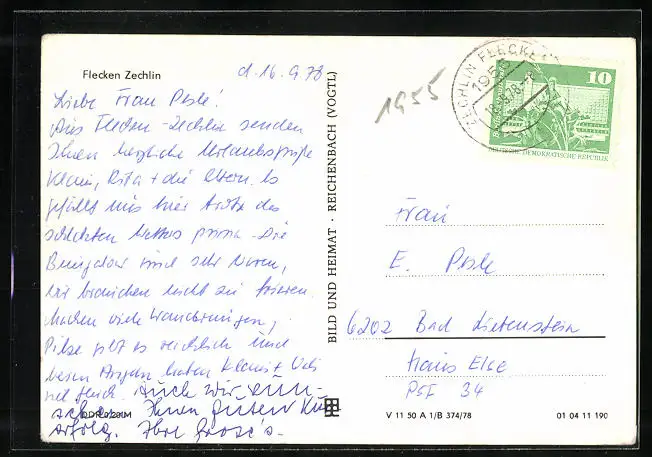 Flecken Zechlin
d. 16.9.78
Liebe Frau Pesle!
Aus Flecken-Zechlin senden
Ihnen herzliche Urlaubsgrüße
Klaus, Rita + die Eltern. Es
gefällt uns hier trotz des
schlechten Wetters prima. Die
Bungalow sind sehr warm,
wir brauchen nicht zu frieren.
Machen viele Wanderungen,
Pilze gibt es reichlich und
beim Angeln haben Klaus + 
viel Glück. Auch wir wün-
schen Ihnen guten Kur-
erfolg. Ihre
DDR
BILD UND HEIMAT · REICHENBACH (VOGTL)
1955
ZECHLIN FLECKEN
1955
10
DEUTSCHE DEMOKRATISCHE REPUBLIK
Frau
E. Pesle
6202 Bad Liebenstein
Haus Else
PSF 34
V 11 50 A 1/B 374/78
01 04 11 190